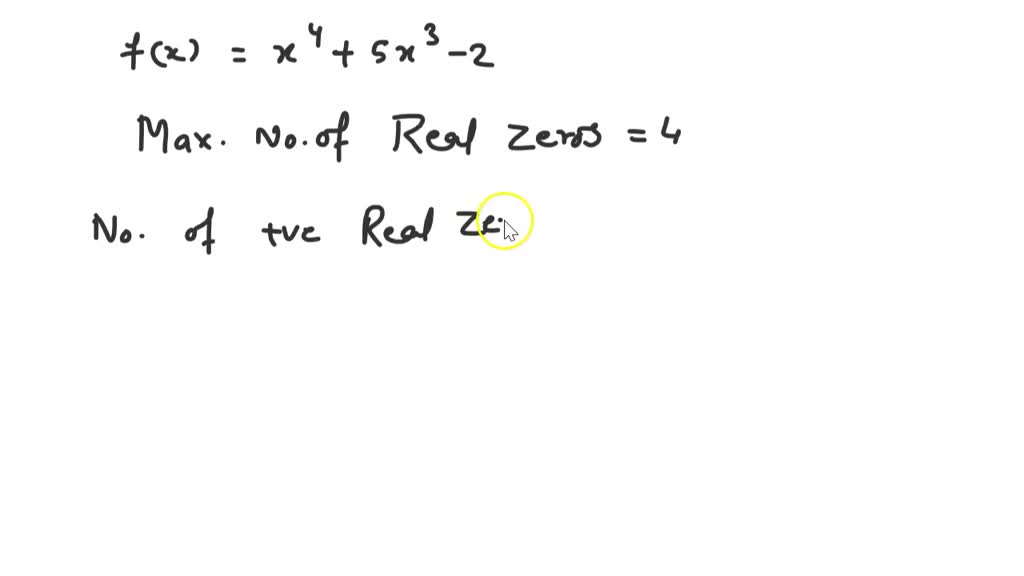 f(x) = x⁴ + 5x³ - 2
Max. No. of Real Zeros = 4
No. of +ve Real Ze